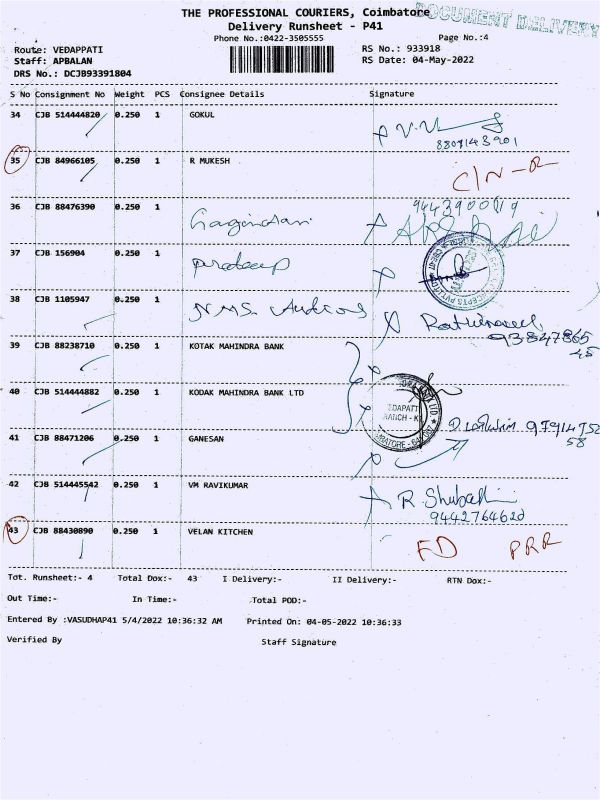 THE PROFESSIONAL COURIERS, Coimbatore
DOCUMENT DELIVERY
Delivery Runsheet - P41
Phone No.:0422-3505555 Page No.:4
Route: VEDAPPATI RS No.: 933918
Staff: APBALAN RS Date: 04-May-2022
DRS No.: DCJB93391804
S No Consignment No Weight PCS Consignee Details Signature
34 CJB 514444820 0.250 1 GOKUL
35 CJB 84966105 0.250 1 R MUKESH
C/N-R
36 CJB 88476390 0.250 1
37 CJB 156904 0.250 1 pradeep
38 CJB 1105947 0.250 1 NMS
39 CJB 88238710 0.250 1 KOTAK MAHINDRA BANK
40 CJB 514444882 0.250 1 KODAK MAHINDRA BANK LTD
41 CJB 88471206 0.250 1 GANESAN
42 CJB 514445542 0.250 1 VM RAVIKUMAR
9442764620
43 CJB 88430890 0.250 1 VELAN KITCHEN
FD PRR
Tot. Runsheet:- 4 Total Dox:- 43 I Delivery:- II Delivery:- RTN Dox:-
Out Time:- In Time:- Total POD:-
Entered By :VASUDHAP41 5/4/2022 10:36:32 AM Printed On: 04-05-2022 10:36:33
Verified By Staff Signature